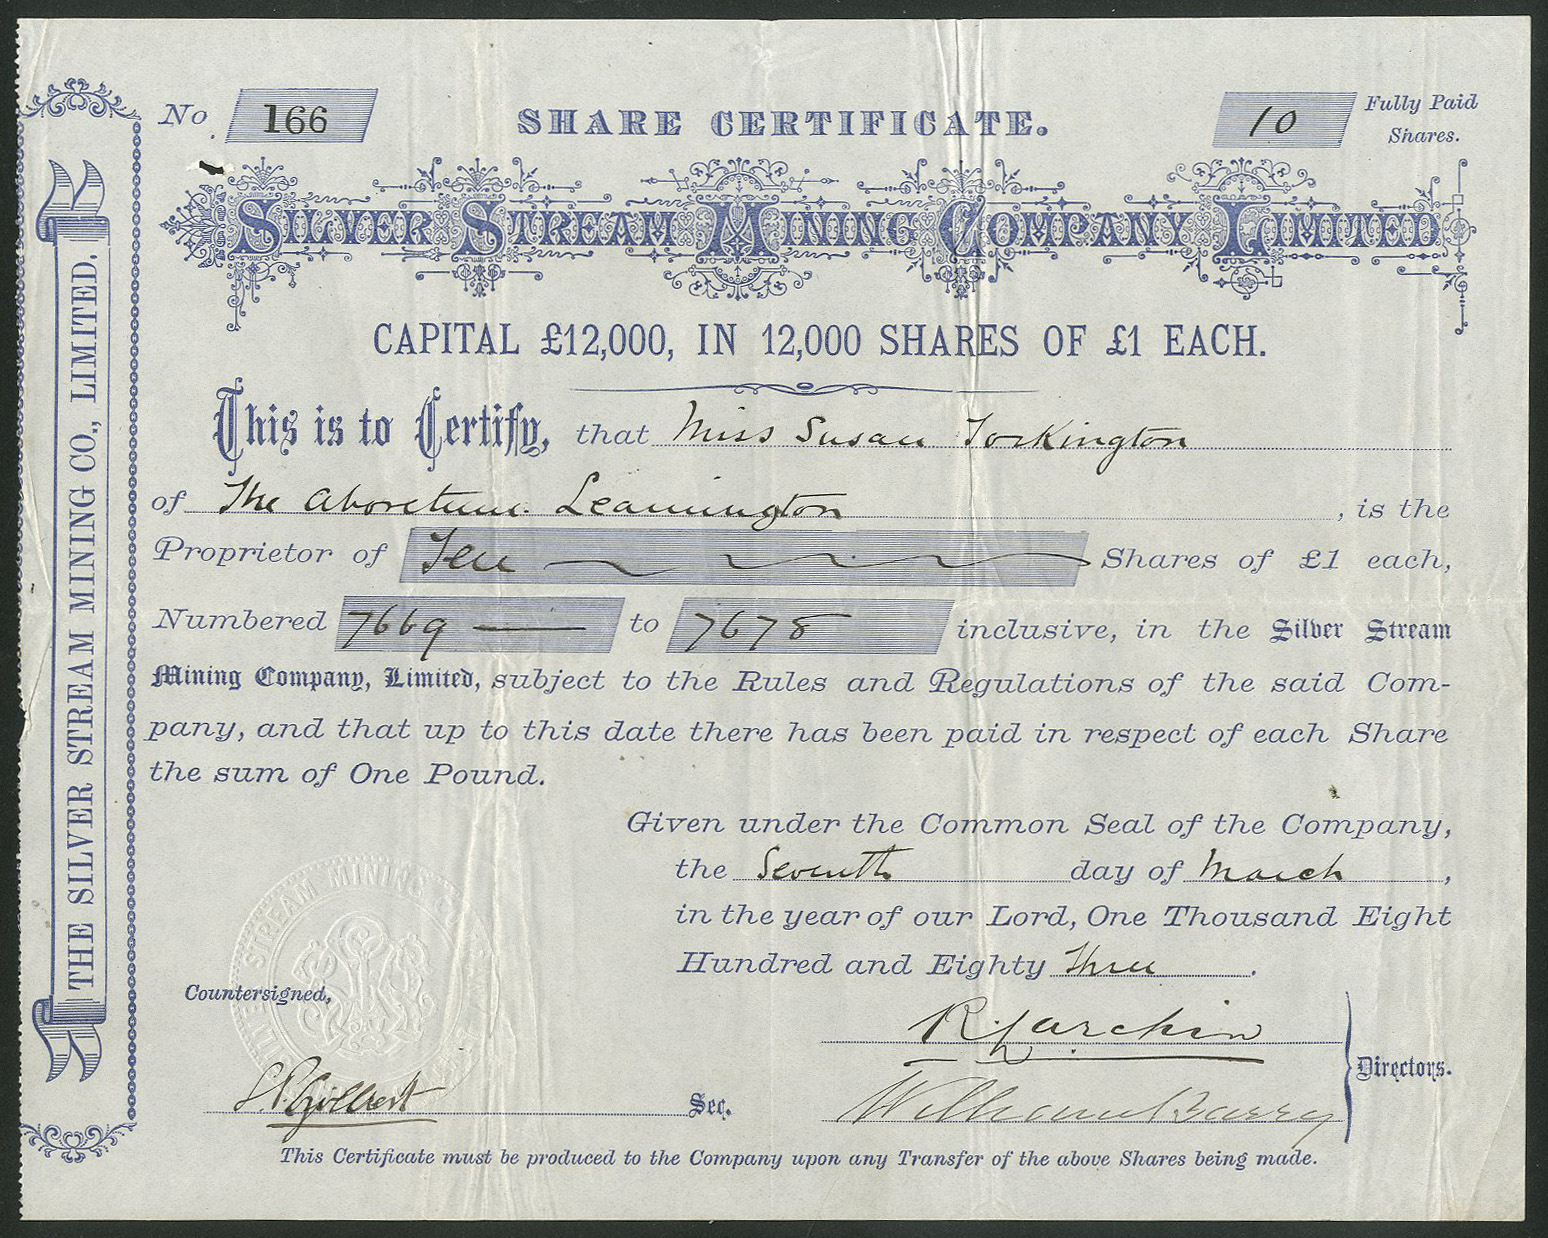 No. 166
SHARE CERTIFICATE.
10 Fully Paid
Shares.
SILVER STREAM MINING COMPANY LIMITED
CAPITAL £12,000, IN 12,000 SHARES OF £1 EACH.
This is to Certify, that Miss Susan Torkington
of The Aboretum. Leamington, is the
Proprietor of Ten Shares of £1 each,
Numbered 7669 — to 7678 inclusive, in the Silver Stream
Mining Company, Limited, subject to the Rules and Regulations of the said Com-
pany, and that up to this date there has been paid in respect of each Share
the sum of One Pound.
Given under the Common Seal of the Company,
the Seventh day of March,
in the year of our Lord, One Thousand Eight
Hundred and Eighty Three.
Countersigned,
R. Larchin
Directors.
Gilbert Sec.
William Barry
This Certificate must be produced to the Company upon any Transfer of the above Shares being made.
THE SILVER STREAM MINING CO., LIMITED.
STREAM MINING